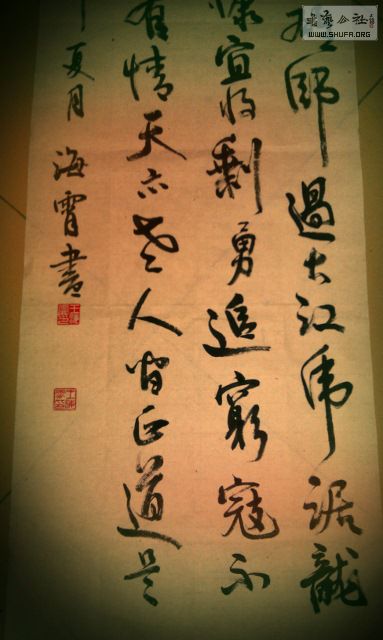 師過大江虎踞龍
慷宜将剩勇追窮寇不
有情天亦老人間正道是
夏月海霄書
公社
WWW.SHUFA.ORG